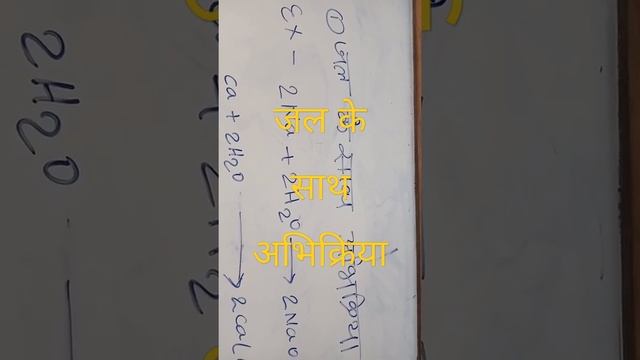 ① जल के साथ अभिक्रिया
Ex - 2Na + 2H₂O → 2NaO
Ca + 2H₂O → 2Ca(
जल के
साथ
अभिक्रिया
2H₂O